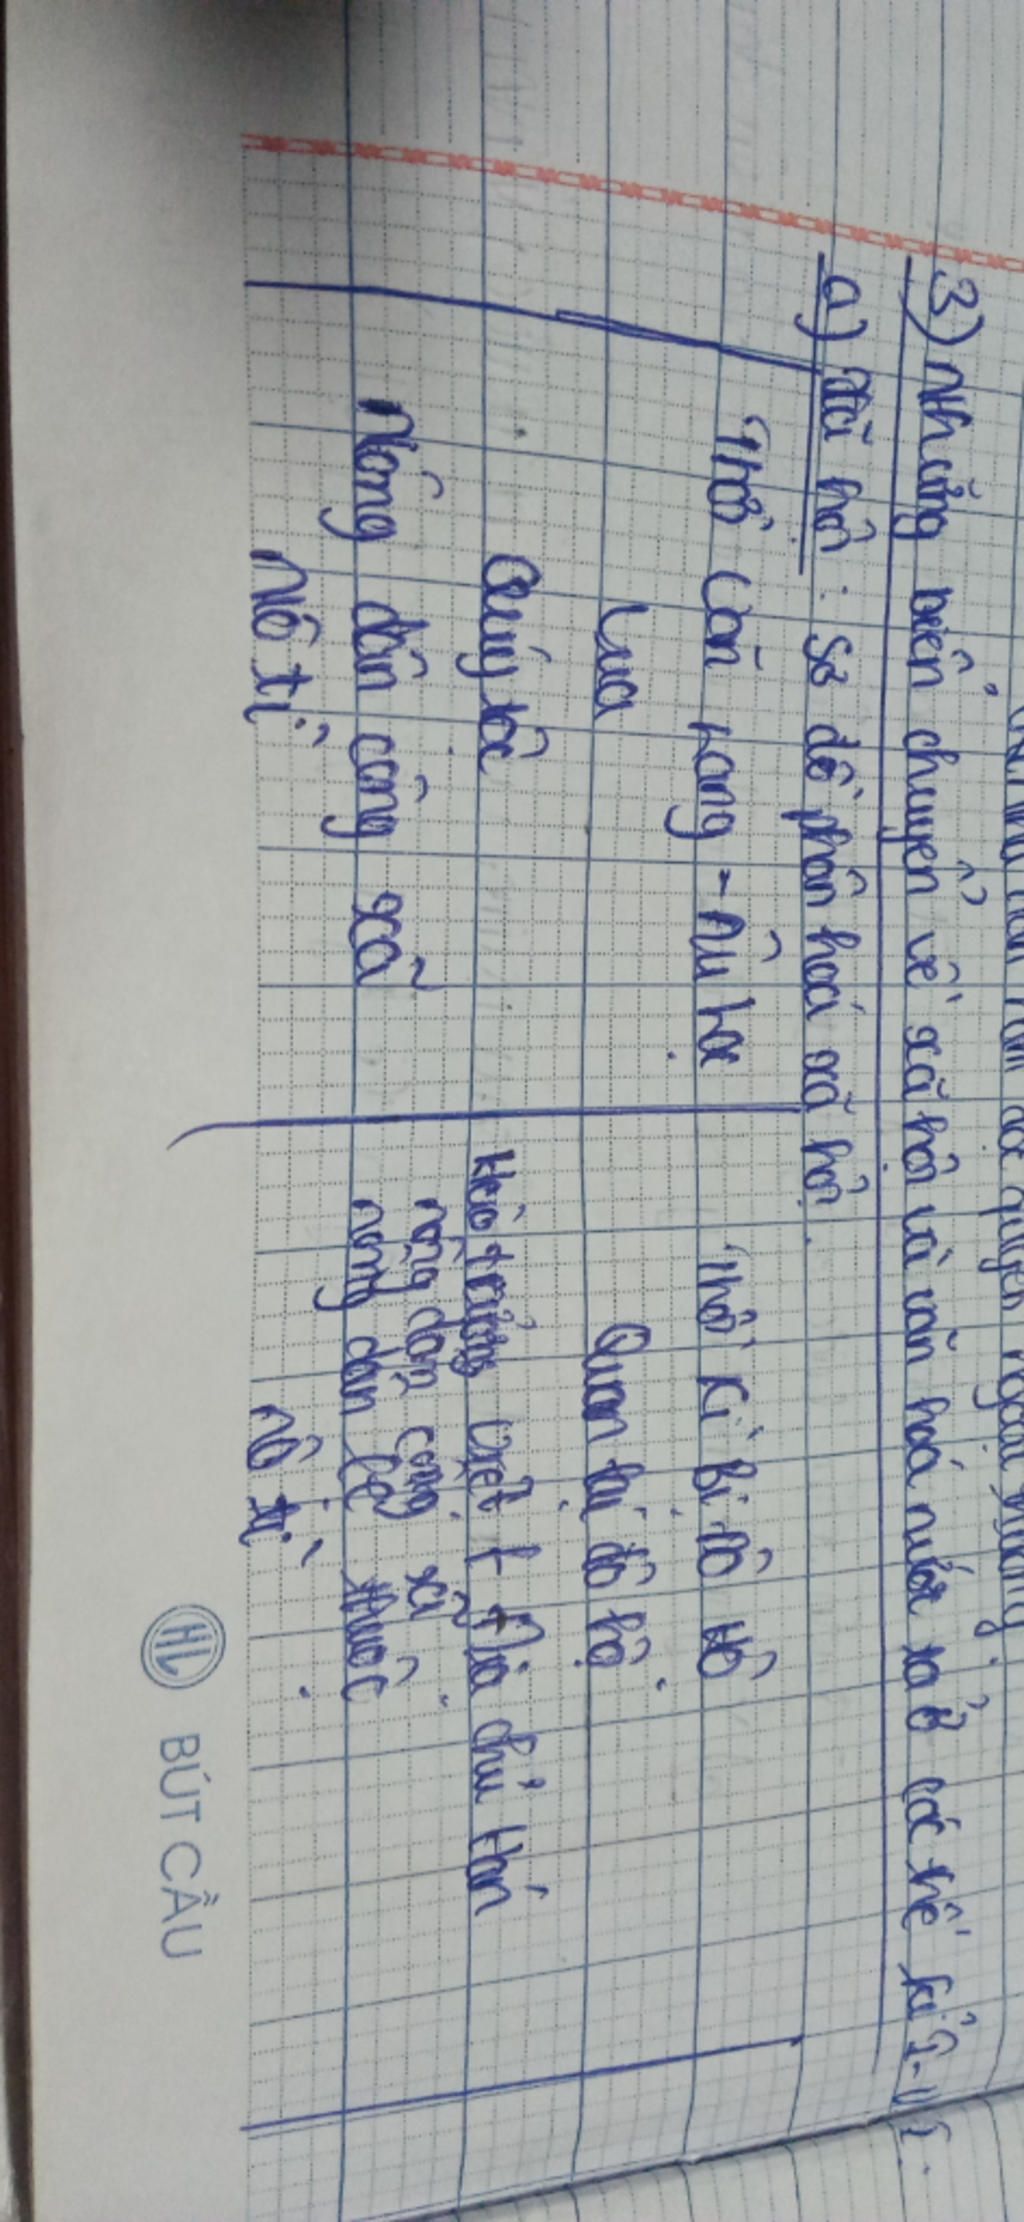 3) Những biến chuyển về xã hội và văn hoá nước ta ở các thế kỉ I-VI.
a) Xã hội: Sơ đồ phân hoá xã hội.
Thời Văn Lang - Âu Lạc
Thời kì bị đô hộ
Vua
Quan lại đô hộ
Quý tộc
Hào trưởng Việt + Địa chủ Hán
Nông dân công xã
nông dân công xã
nông dân lệ thuộc
Nô tì
nô tì
BÚT CẦU
HL